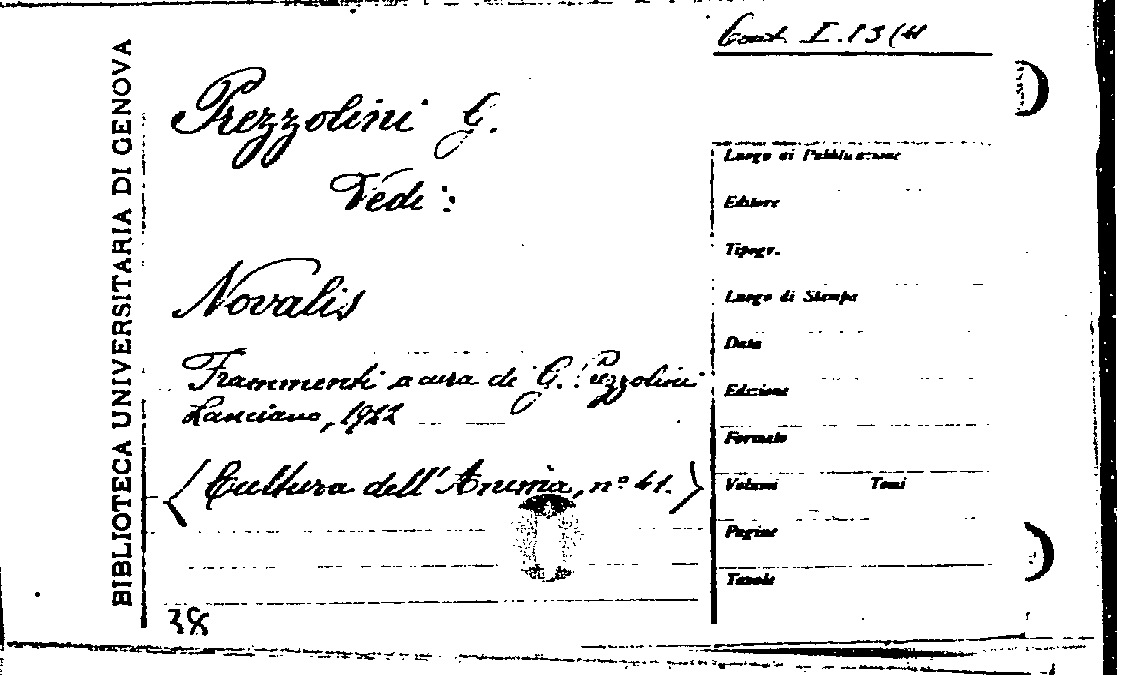 I.13(4
BIBLIOTECA UNIVERSITARIA DI GENOVA
Prezzolini G.
Vedi:
Novalis
Frammenti a cura di G. Prezzolini
Lanciano, 1922
(Cultura dell'Anima, nº 41.)
38
Luogo di Pubblicazione
Editore
Tipogr.
Luogo di Stampa
Data
Edizione
Formato
Volumi Tomi
Pagine
Tavole